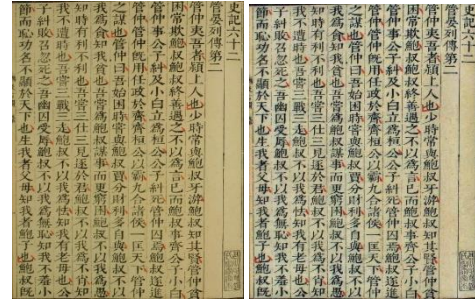 史記六十二
管晏列傳第二
管仲夷吾者潁上人也少時常與鮑叔牙游鮑叔知其賢管仲貧
困常欺鮑叔鮑叔終善遇之不以為言已而鮑叔事齊公子小白
管仲事公子糾及小白立為桓公公子糾死管仲囚焉鮑叔遂進
管仲管仲既用任政於齊齊桓公以霸九合諸侯一匡天下管仲
之謀也管仲曰吾始困時嘗與鮑叔賈分財利多自與鮑叔不以
我為貪知我貧也吾嘗為鮑叔謀事而更窮困鮑叔不以我為愚
知時有利不利也吾嘗三仕三見逐於君鮑叔不以我為不肖知
我不遭時也吾嘗三戰三走鮑叔不以我為怯知我有老母也公
子糾敗召忽死之吾幽囚受辱鮑叔不以我為無恥知我不羞小
節而恥功名不顯於天下也生我者父母知我者鮑子也鮑叔既
史記六十二
管晏列傳第二
管仲夷吾者潁上人也少時常與鮑叔牙游鮑叔知其賢管仲貧
困常欺鮑叔鮑叔終善遇之不以為言已而鮑叔事齊公子小白
管仲事公子糾及小白立為桓公公子糾死管仲囚焉鮑叔遂進
管仲管仲既用任政於齊齊桓公以霸九合諸侯一匡天下管仲
之謀也管仲曰吾始困時嘗與鮑叔賈分財利多自與鮑叔不以
我為貪知我貧也吾嘗為鮑叔謀事而更窮困鮑叔不以我為愚
知時有利不利也吾嘗三仕三見逐於君鮑叔不以我為不肖知
我不遭時也吾嘗三戰三走鮑叔不以我為怯知我有老母也公
子糾敗召忽死之吾幽囚受辱鮑叔不以我為無恥知我不羞小
節而恥功名不顯於天下也生我者父母知我者鮑子也鮑叔既